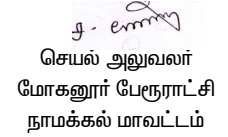 செயல் அலுவலர்
மோகனூர் பேரூராட்சி
நாமக்கல் மாவட்டம்